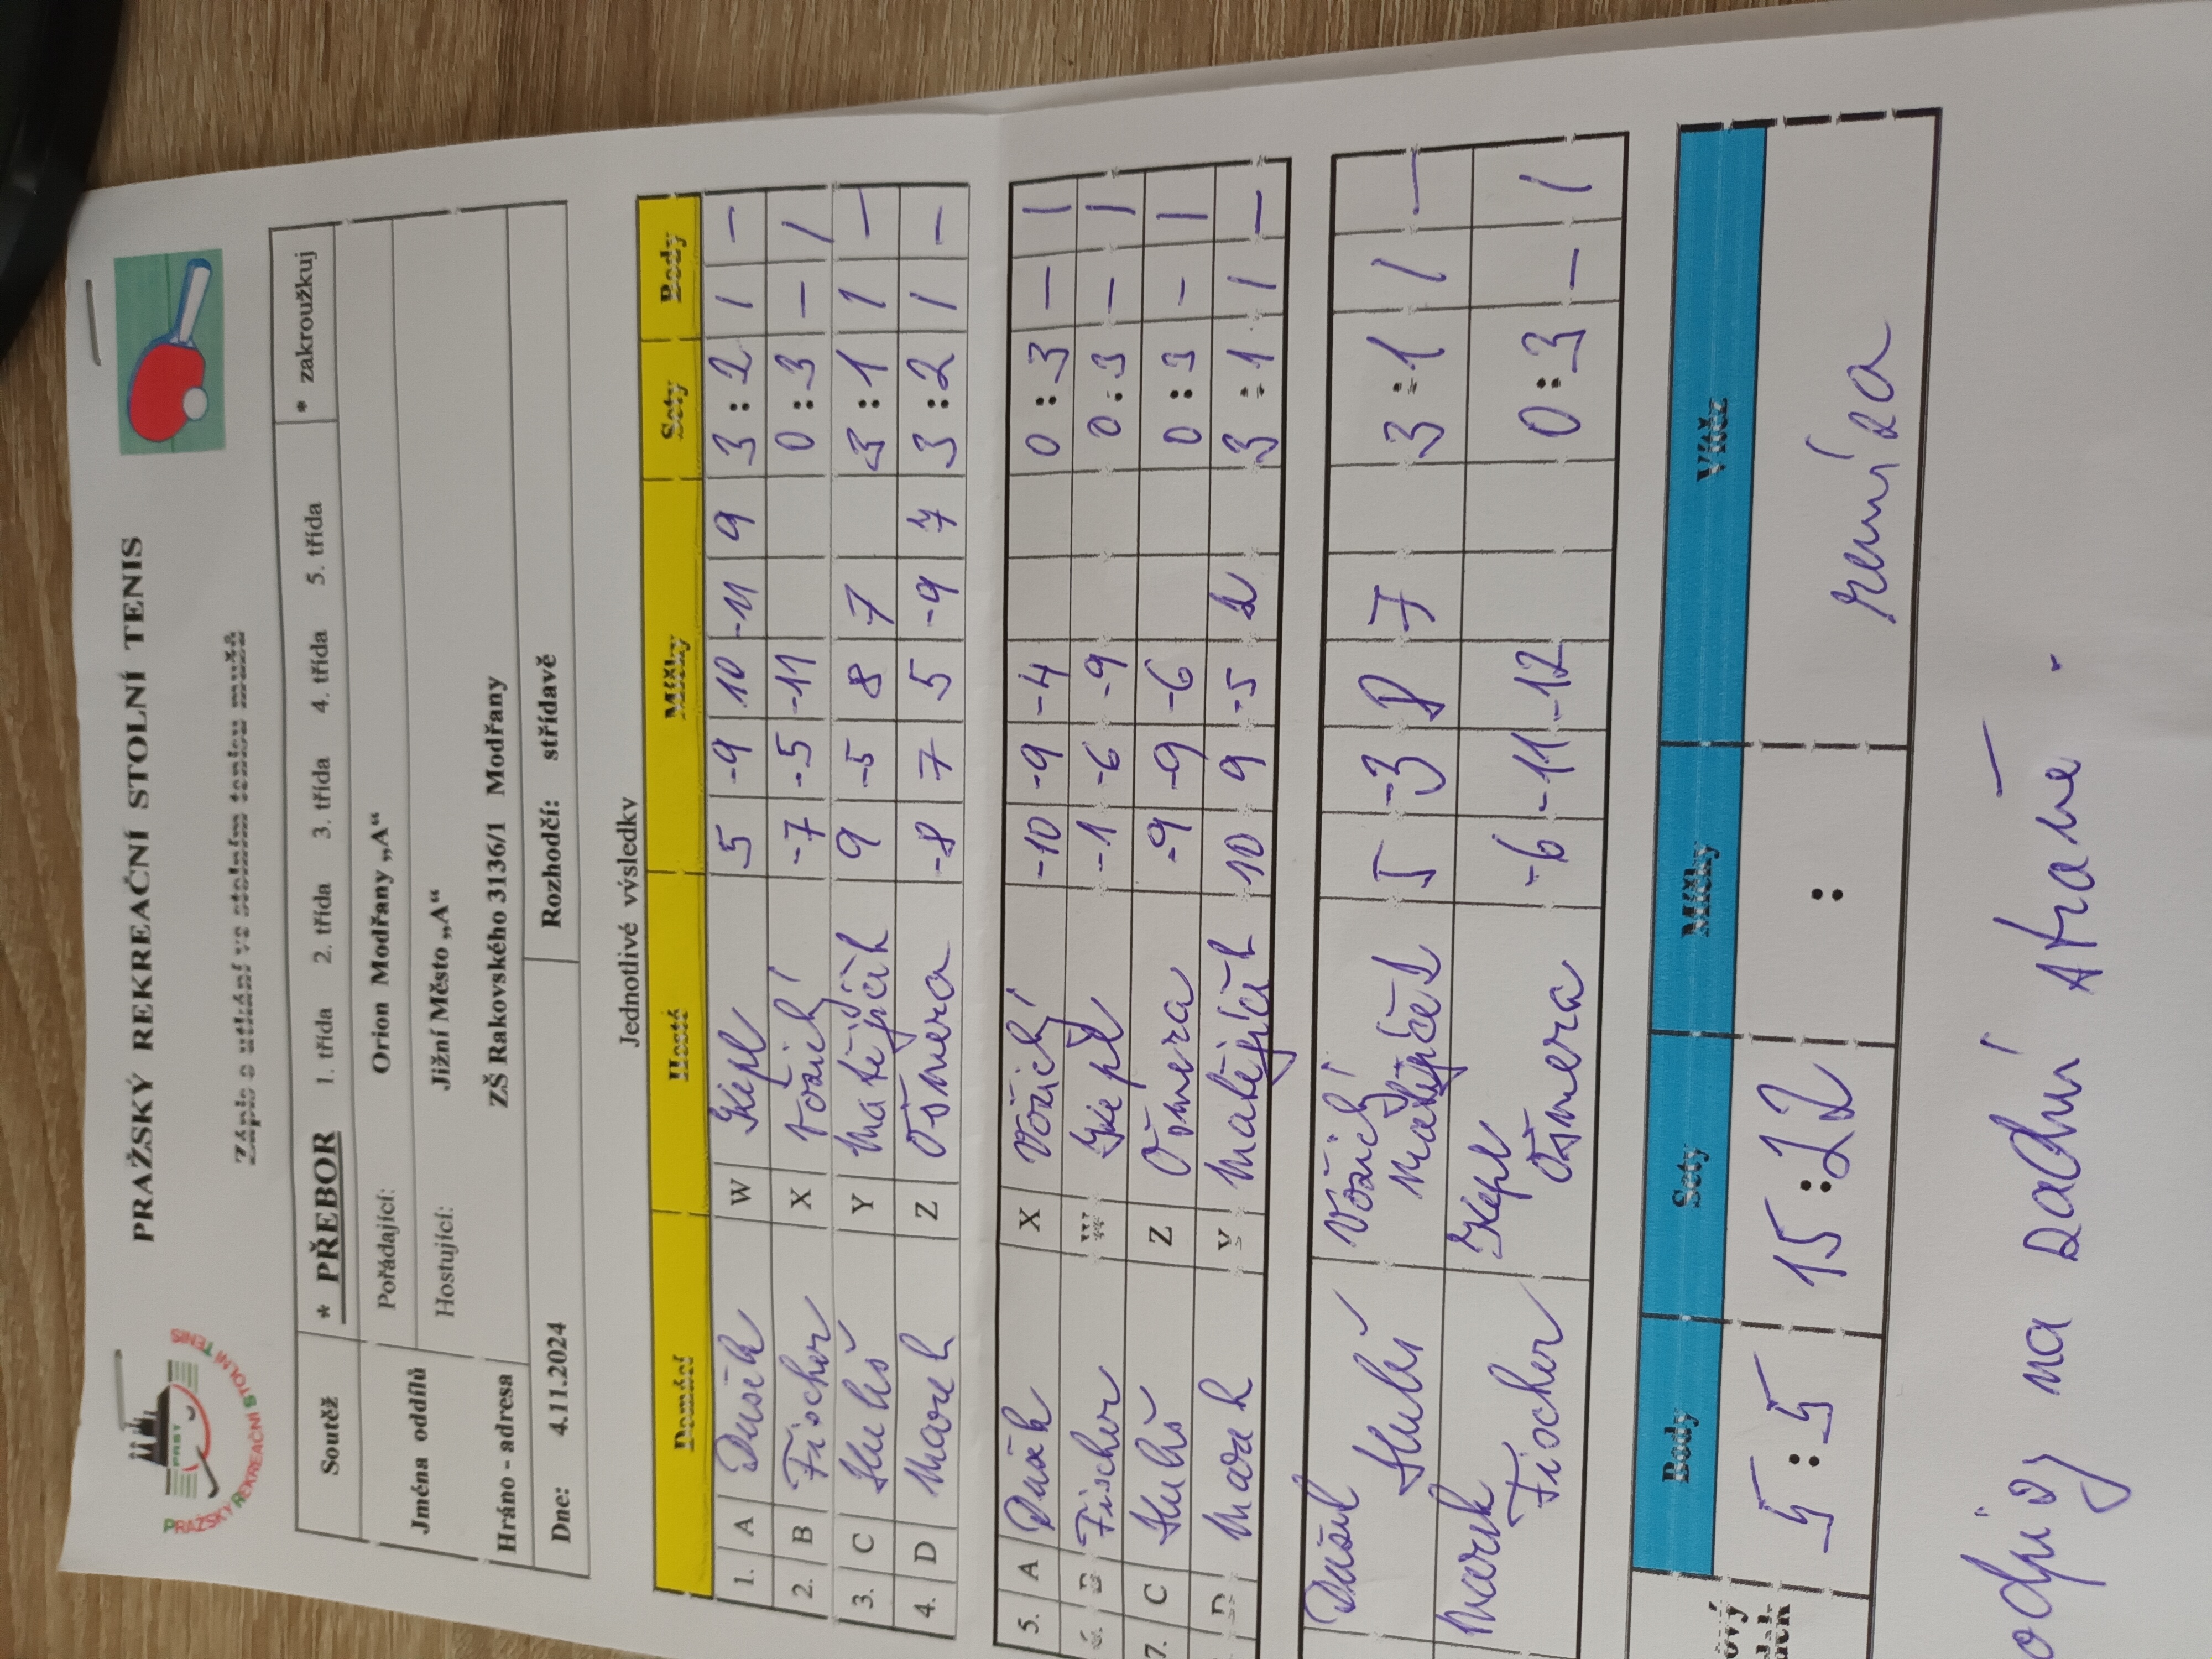 PRAŽSKÝ REKREAČNÍ STOLNÍ TENIS
PRAŽSKÝ REKREAČNÍ STOLNÍ TENIS
PRST
Zápis o utkání ve stolním tenisu mužů
Soutěž * PŘEBOR 1. třída 2. třída 3. třída 4. třída 5. třída * zakroužkuj
Jména oddílů Pořádající: Orion Modřany „A“
Hostující: Jižní Město „A“
Hráno - adresa ZŠ Rakovského 3136/1 Modřany
Dne: 4.11.2024 Rozhodčí: střídavě
Jednotlivé výsledky
Domácí Hosté Míčky Sety Body
1. A Dušek W Kepl 5 -9 10 -11 9 3 : 2 1 –
2. B Fischer X Vozický -7 -5 -11 0 : 3 – 1
3. C Kubš Y Matějíček 9 -5 8 7 3 : 1 1 –
4. D Marek Z Ošmera -8 7 5 -9 7 3 : 2 1 –
5. A Dušek X Vozický -10 -9 -4 0 : 3 – 1
6. B Fischer W Kepl -1 -6 -9 0 : 3 – 1
7. C Kubš Z Ošmera -9 -9 -6 0 : 3 – 1
D Marek Y Matějíček 10 9 -5 2 3 : 1 1 –
Dušek Kubš Vozický Matějíček 5 -3 8 7 3 : 1 1 –
Marek Fischer Kepl Ošmera -6 -11 -12 0 : 3 – 1
Body Sety Míčky Vítěz
5 : 5 15 : 22 : remíza
odpisy na zadní straně.